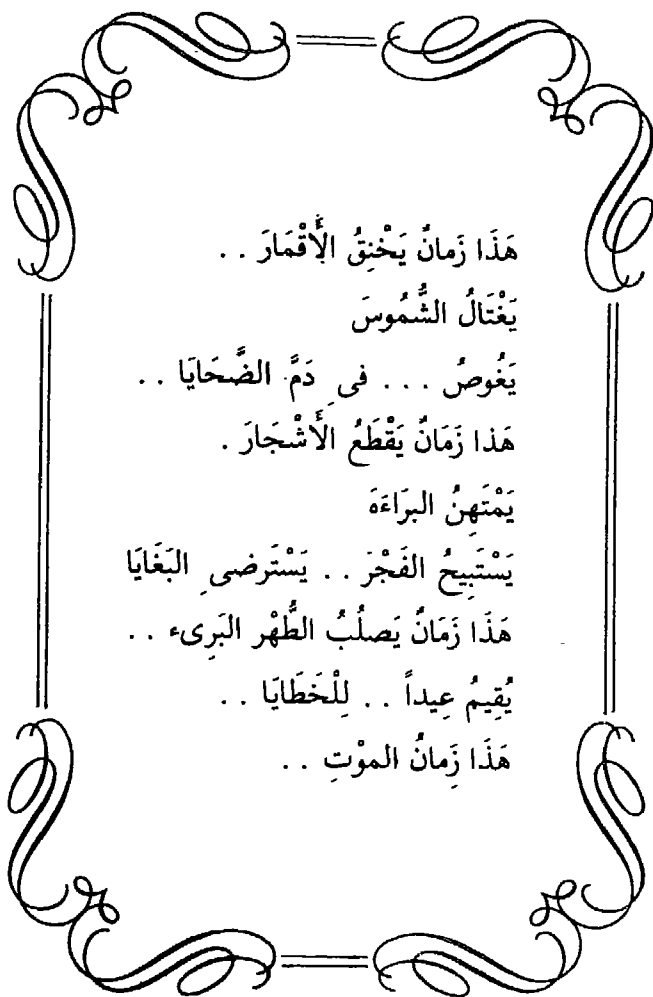 هَذَا زَمانٌ يَخْنِقُ الأَقْمَارَ . .
يَغْتَالُ الشُّمُوسَ
يَغُوصُ . . . فى دَمِّ الضَّحَايَا . .
هَذا زَمَانٌ يَقْطَعُ الأَشْجَارَ .
يَمْتَهِنُ البرَاءَةَ
يَسْتَبِيحُ الفَجْرَ . . يَسْتَرضى البَغَايَا
هَذَا زَمَانٌ يَصلُبُ الطُّهْر البَرِىء . .
يُقِيمُ عِيداً . . لِلْخَطَايَا . .
هَذَا زَمانُ الموْتِ . .